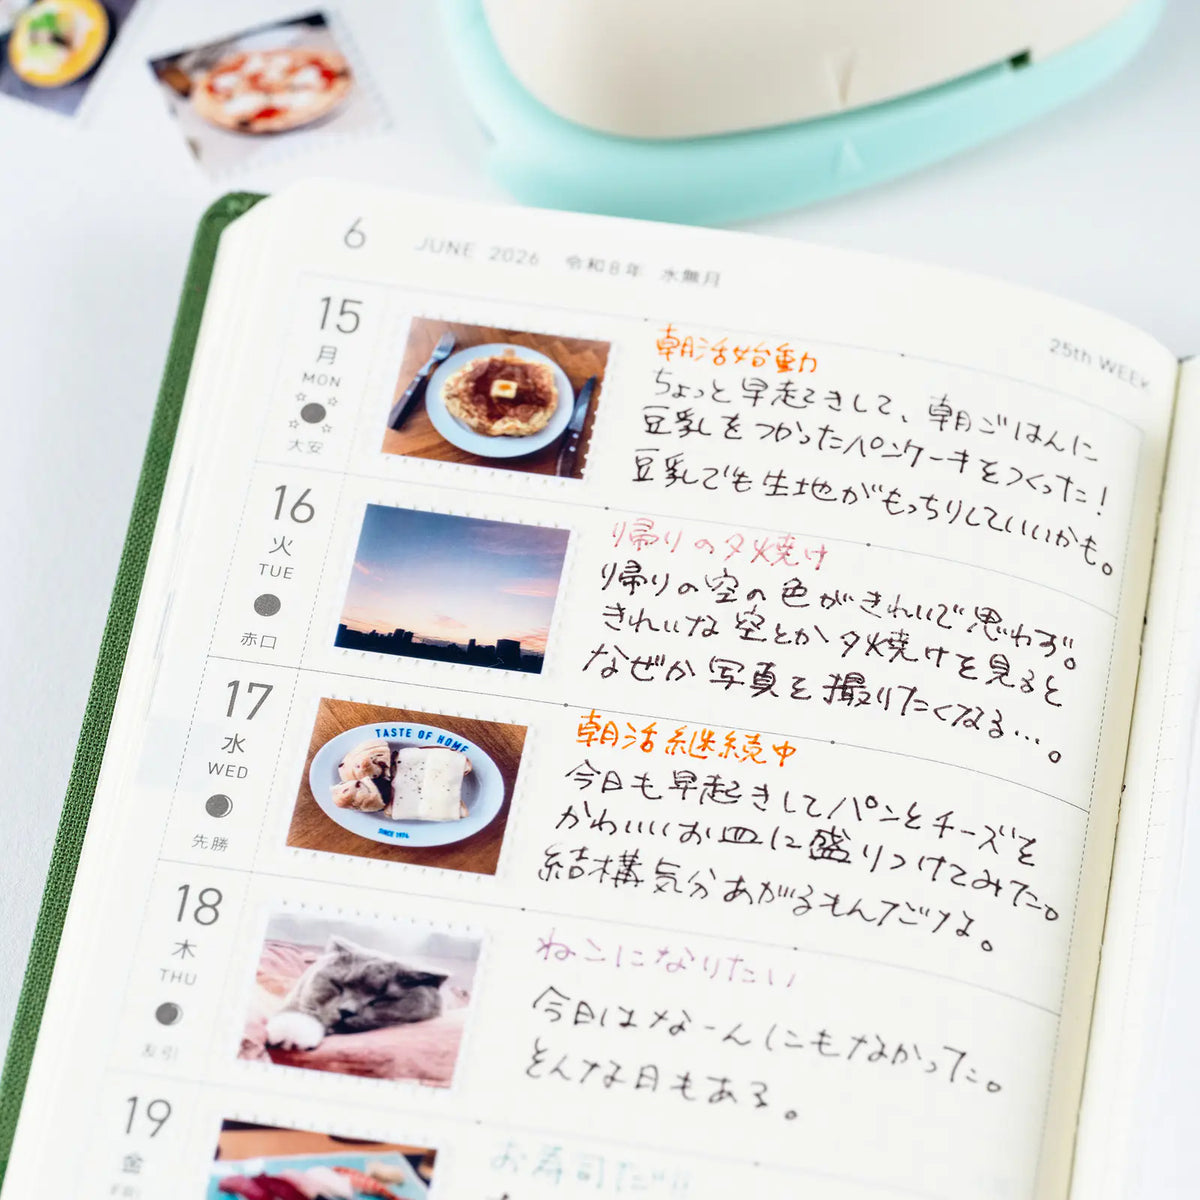 6 JUNE 2026 令和8年 水無月
25th WEEK
15
月
MON
大安
朝活始動
ちょっと早起きして、朝ごはんに
豆乳をつかったパンケーキをつくった！
豆乳でも生地がもっちりしていいかも。
16
火
TUE
赤口
帰りの夕焼け
帰りの空の色がきれいで思わず。
きれいな空とか夕焼けを見ると
なぜか写真を撮りたくなる…。
17
水
WED
先勝
TASTE OF HOME
SINCE 1976
朝活継続中
今日も早起きしてパンとチーズを
かわいいお皿に盛りつけてみた。
結構気分あがるもんだける。
18
木
THU
友引
ねこになりたい
今日はなーんにもなかった。
そんな日もある。
19
金
FRI
お寿司だ!!